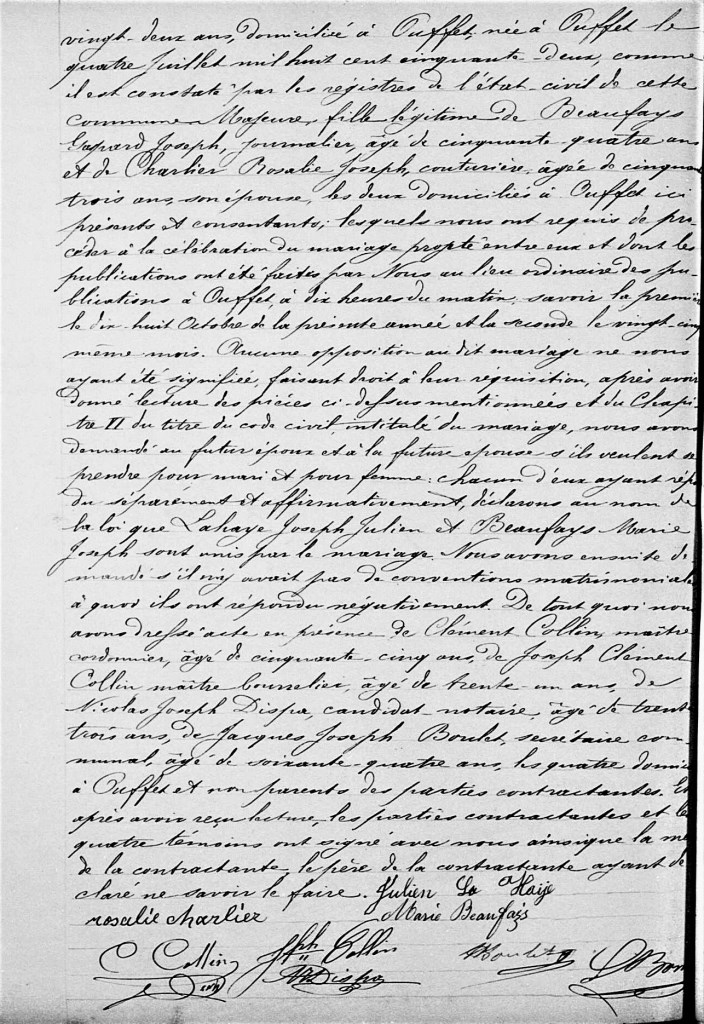 vingt-deux ans, domiciliée à Ouffet, née à Ouffet le
quatre Juillet mil huit cent cinquante-deux, comme
il est constaté par les régistres de l'état-civil de cette
commune, Majeure, fille légitime de Beaufays
Gaspard Joseph, journalier, âgé de cinquante-quatre ans
et de Charlier Rosalie Joseph, couturière, âgée de cinquan
trois ans, son épouse, les deux domiciliés à Ouffet ici
présents et consentants; lesquels nous ont requis de pro
céder à la célébration du mariage projeté entre eux et dont les
publications ont été faites par Nous au lieu ordinaire des pu-
blications à Ouffet, à dix heures du matin, savoir la premiè
le dix-huit Octobre de la présente année et la seconde le vingt-cinq
même mois. Aucune opposition au dit mariage ne nous
ayant été signifiée, faisant droit à leur réquisition, après avoir
donné lecture des pièces ci-dessus mentionnées et du Chapi-
tre VI du titre du code civil, intitulé du mariage, nous avons
demandé au futur époux et à la future épouse s'ils veulent se
prendre pour mari et pour femme: chacun d'eux ayant rép
du séparément et affirmativement, déclarons au nom de
la loi que Lahaye Joseph Julien et Beaufays Marie
Joseph sont unis par le mariage. Nous avons ensuite de
mandé s'il n'y avait pas de conventions matrimoniale
à quoi ils ont répondu négativement. De tout quoi nou
avons dressé acte en présence de Clément Collin, maître
cordonnier, âgé de cinquante-cinq ans, de Joseph Clément
Collin maître bourrelier, âgé de trente-un ans, de
Nicolas Joseph Dispa, candidat-notaire, âgé de trente
trois ans, de Jacques Joseph Boulet, secrétaire com-
munal, âgé de soixante-quatre ans, les quatre domici
à Ouffet et non parents des parties contractantes. Et
après avoir reçu lecture, les parties contractantes et le
quatre témoins ont signé avec nous ainsi que la mè
de la contractante, le père de la contractante ayant dé
claré ne savoir le faire. Julien La Haye
rosalie charlier Marie Beaufays
C Collin Jph Collin Boulet
Dispa